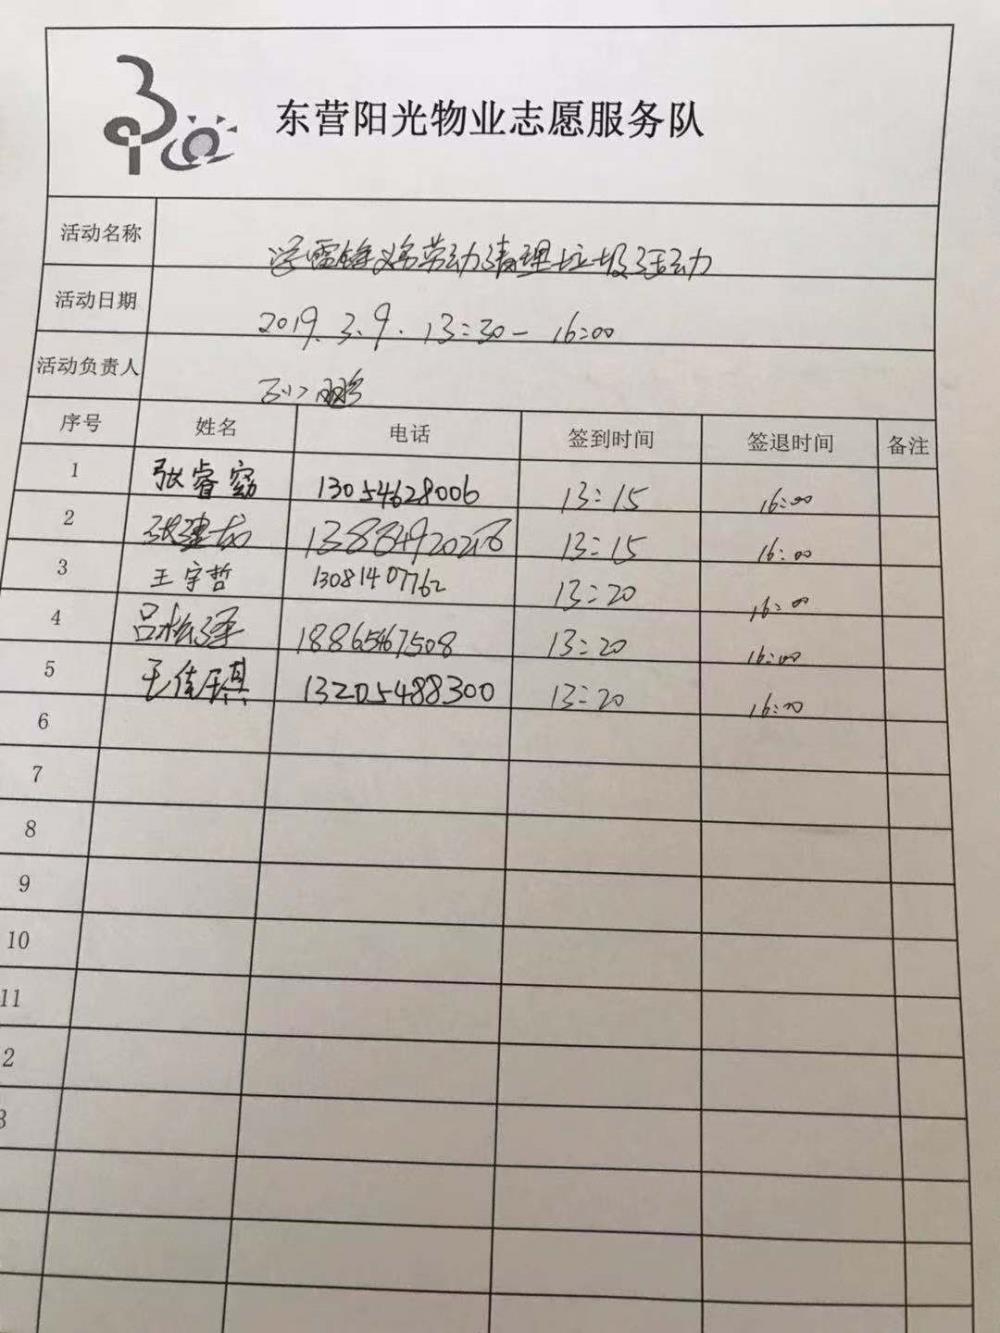 东营阳光物业志愿服务队
活动名称 学雷锋义务劳动清理垃圾活动
活动日期 2019.3.9. 13:30-16:00
活动负责人 鹏
序号 姓名 电话 签到时间 签退时间 备注
1 张睿 13054628006 13:15 16:00
2 张建龙 13:15 16:00
3 王宇哲 13081407762 13:20 16:00
4 吕松泽 18865467508 13:20 16:00
5 王佳琪 13205488300 13:20 16:00
6
7
8
9
10
11
2
3